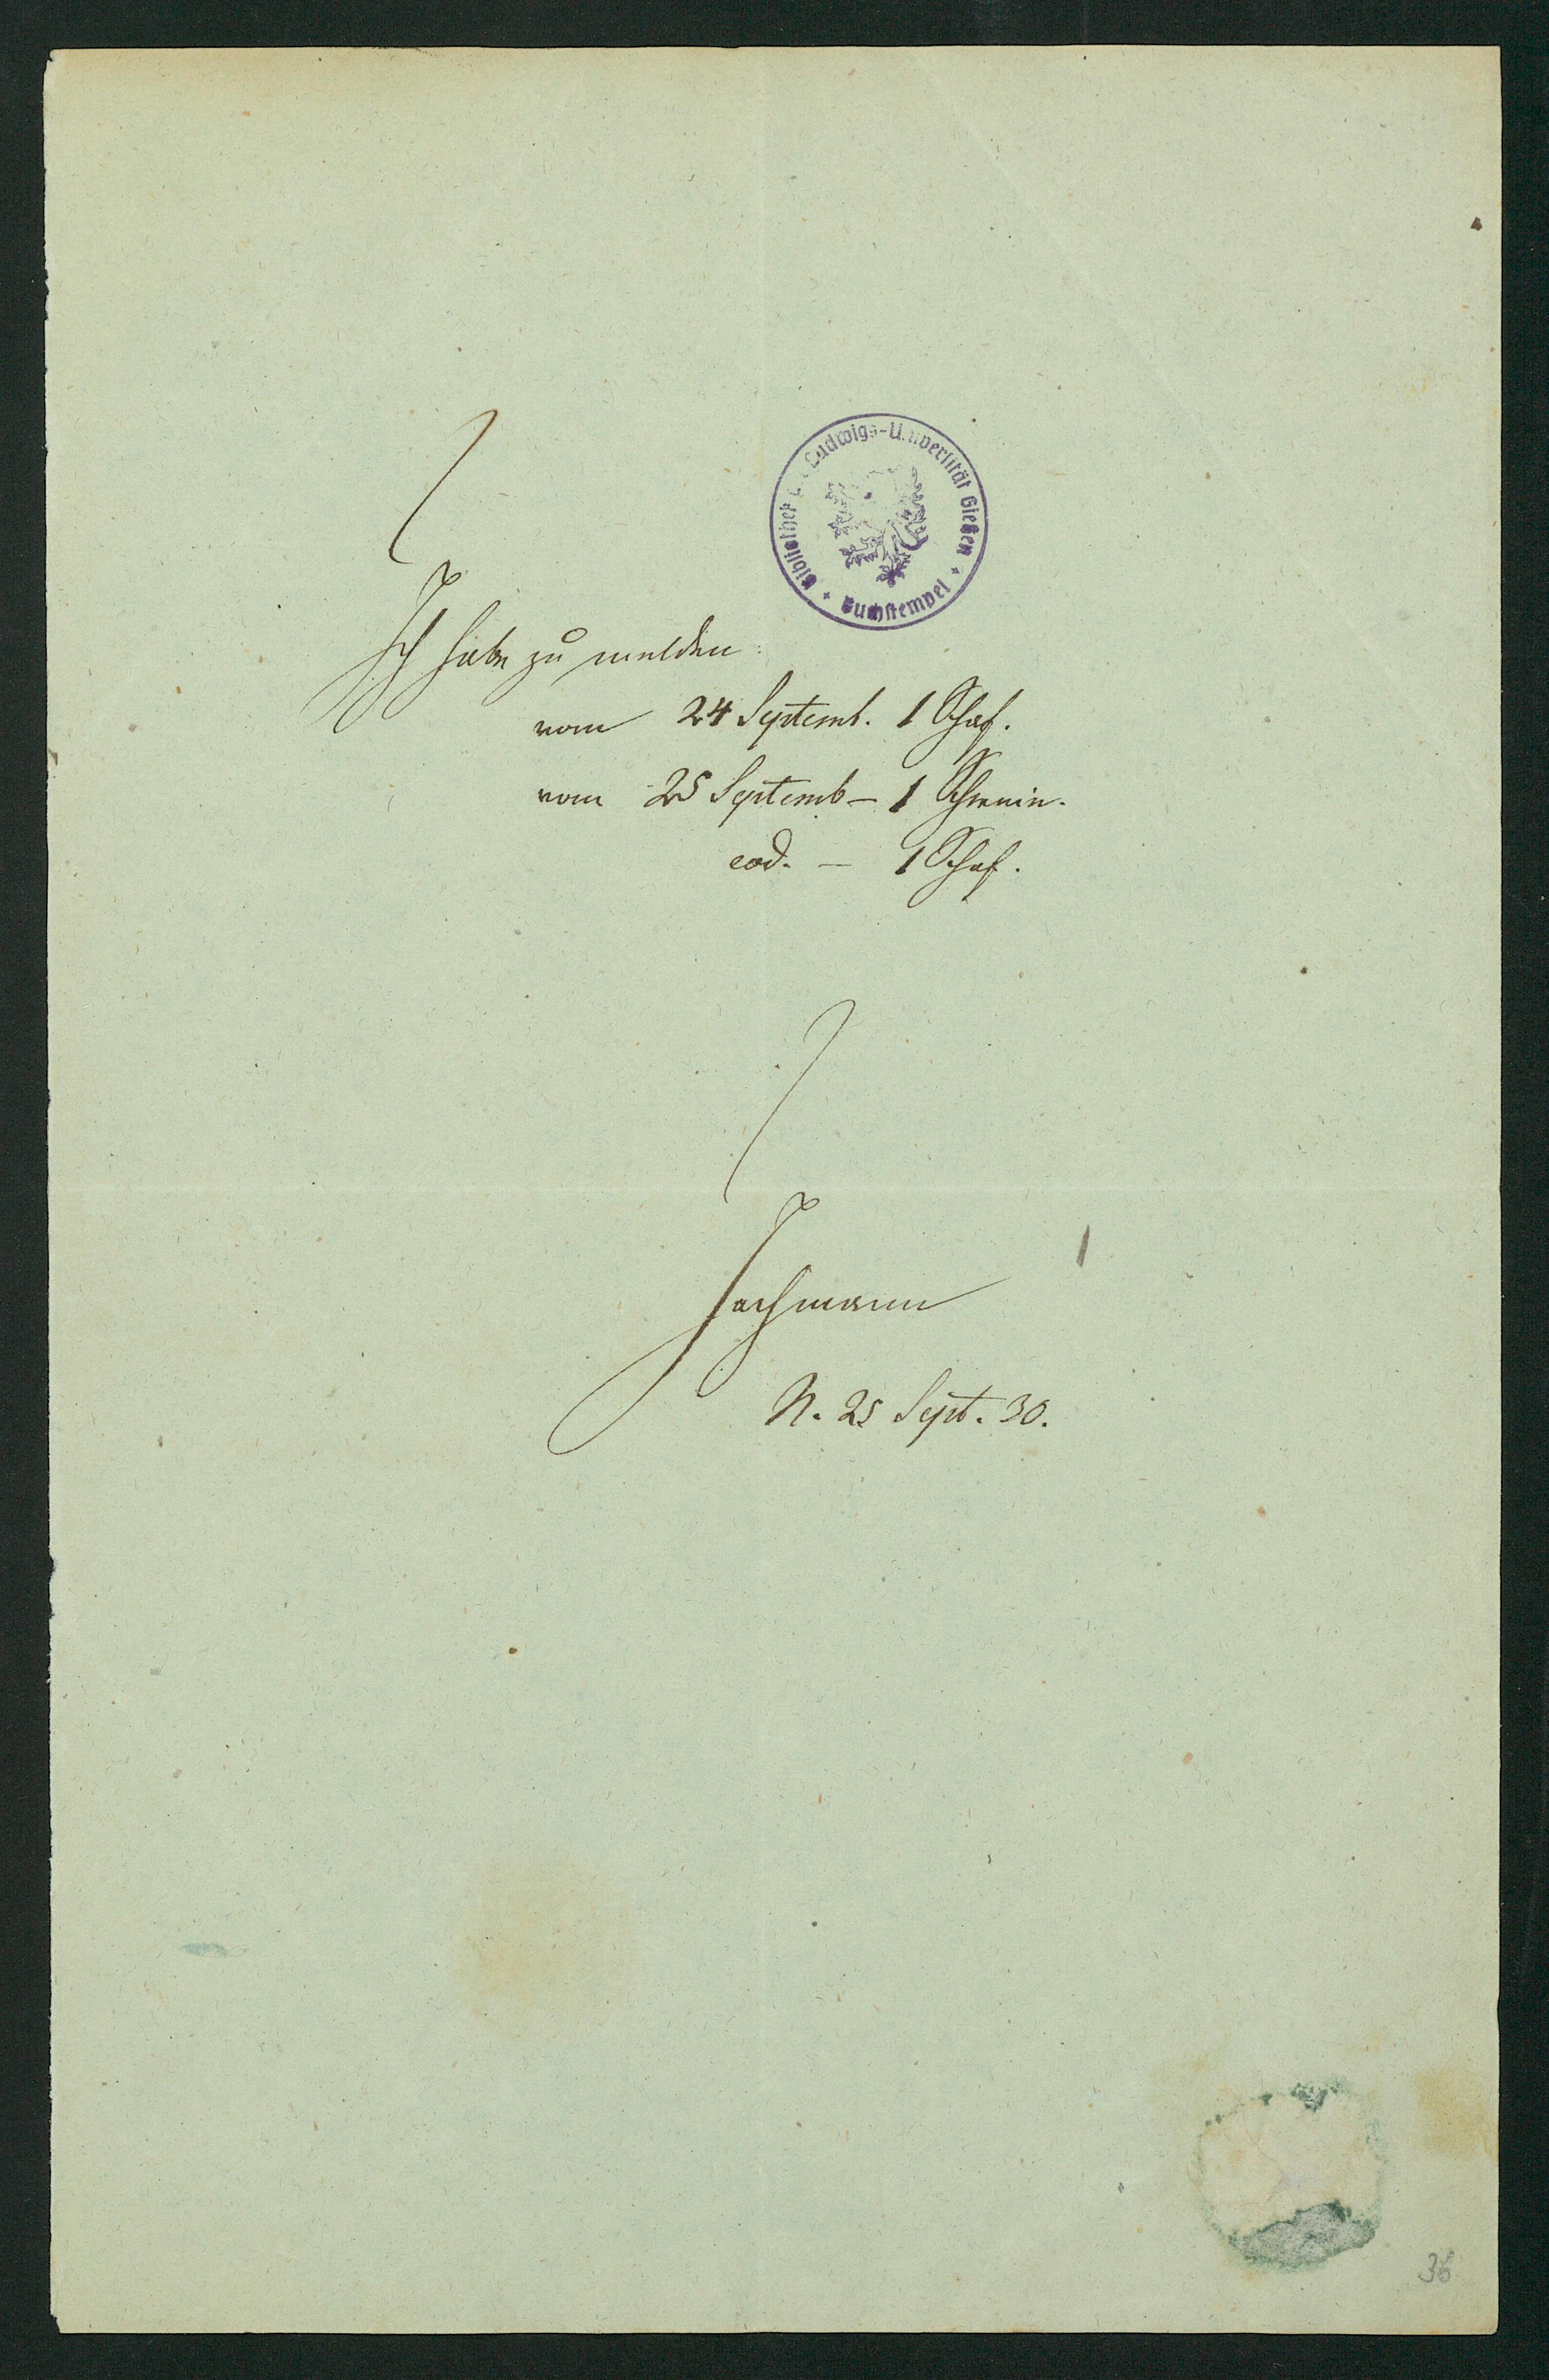 Bibliothek d. Ludwigs-Universität Gießen
+ Buchstempel +
Ich habe zu melden:
vom 24 Septemb. 1 Schaf.
vom 25 Septemb – 1 Schwein.
eod. – 1 Schaf.
Jachmann
N. 25 Sept. 30.
36